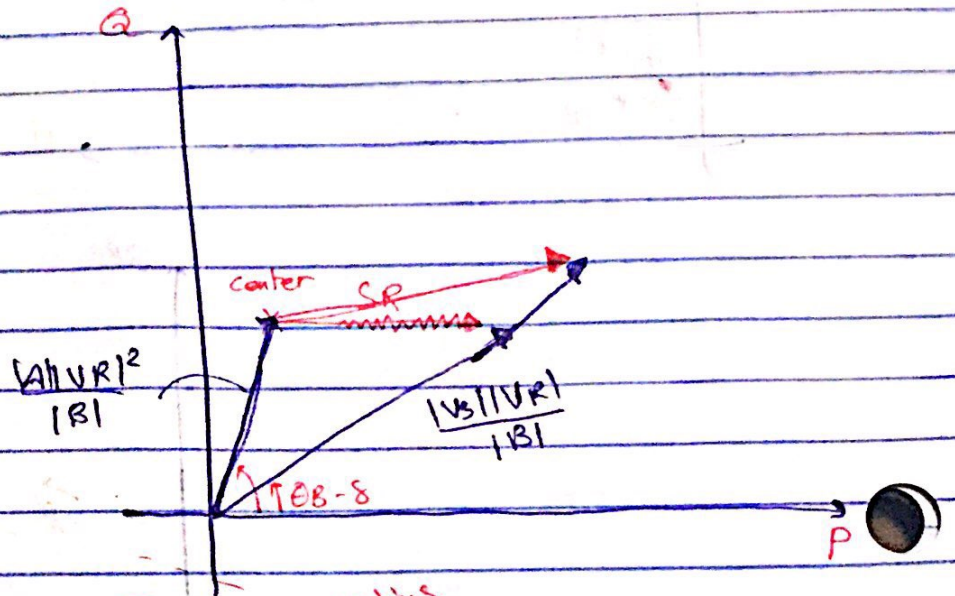 Q
center
SR
|A||VR|²
|B|
|VS||VR|
|B|
θB-δ
P